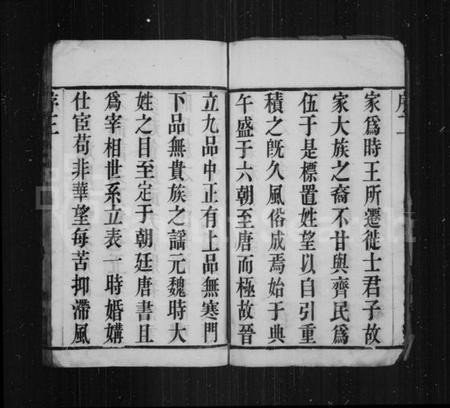 家爲時王所遷徙士君子故
家大族之裔不甘與齊民爲
伍于是標置姓望以自引重
積之旣久風俗成焉始于典
午盛于六朝至唐而極故晉
立九品中正有上品無寒門
下品無貴族之謡元魏時大
姓之目至定于朝廷唐書且
爲宰相世系立表一時婚媾
仕宦苟非華望每苦抑滯風
序三